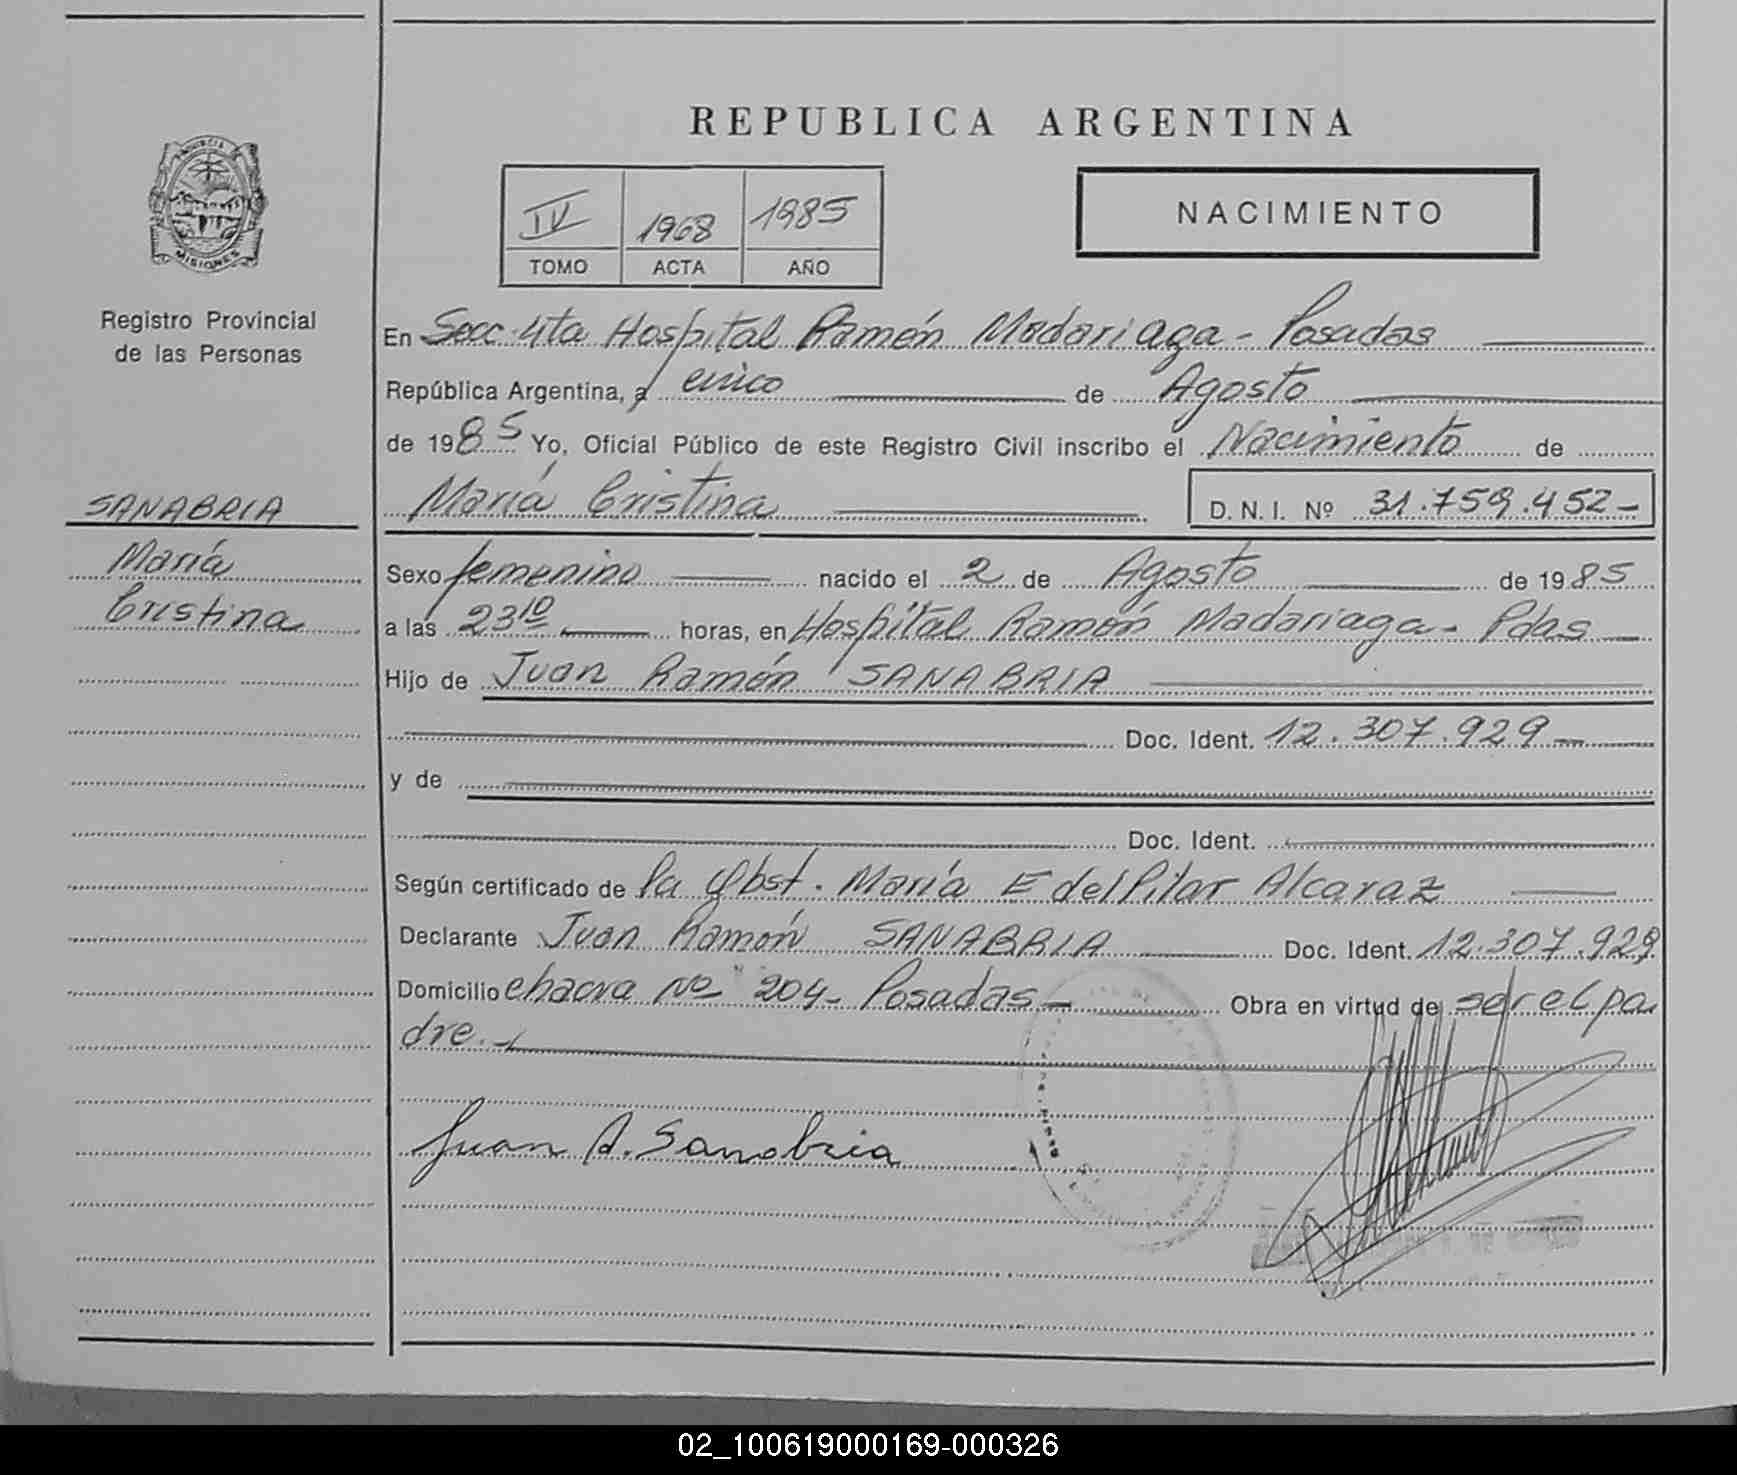 REPUBLICA ARGENTINA
PROVINCIA
MISIONES
Registro Provincial
de las Personas
IV 1968 1985
TOMO ACTA AÑO
NACIMIENTO
En Secc. 4ta Hospital Ramón Madariaga - Posadas
República Argentina, a cinco de Agosto
de 1985 Yo, Oficial Público de este Registro Civil inscribo el Nacimiento de
María Cristina D. N. I. Nº 31.759.452-
SANABRIA
María
Cristina
Sexo femenino nacido el 2 de Agosto de 1985
a las 23 10 horas, en Hospital Ramón Madariaga - Pdas
Hijo de Juan Ramón SANABRIA
Doc. Ident. 12.307.929-
y de
Doc. Ident.
Según certificado de la Obst. María E del Pilar Alcaraz
Declarante Juan Ramón SANABRIA Doc. Ident. 12.307.929
Domicilio chacra Nº 204- Posadas- Obra en virtud de ser el pa
dre.-
Juan R. Sanabria
02_100619000169-000326